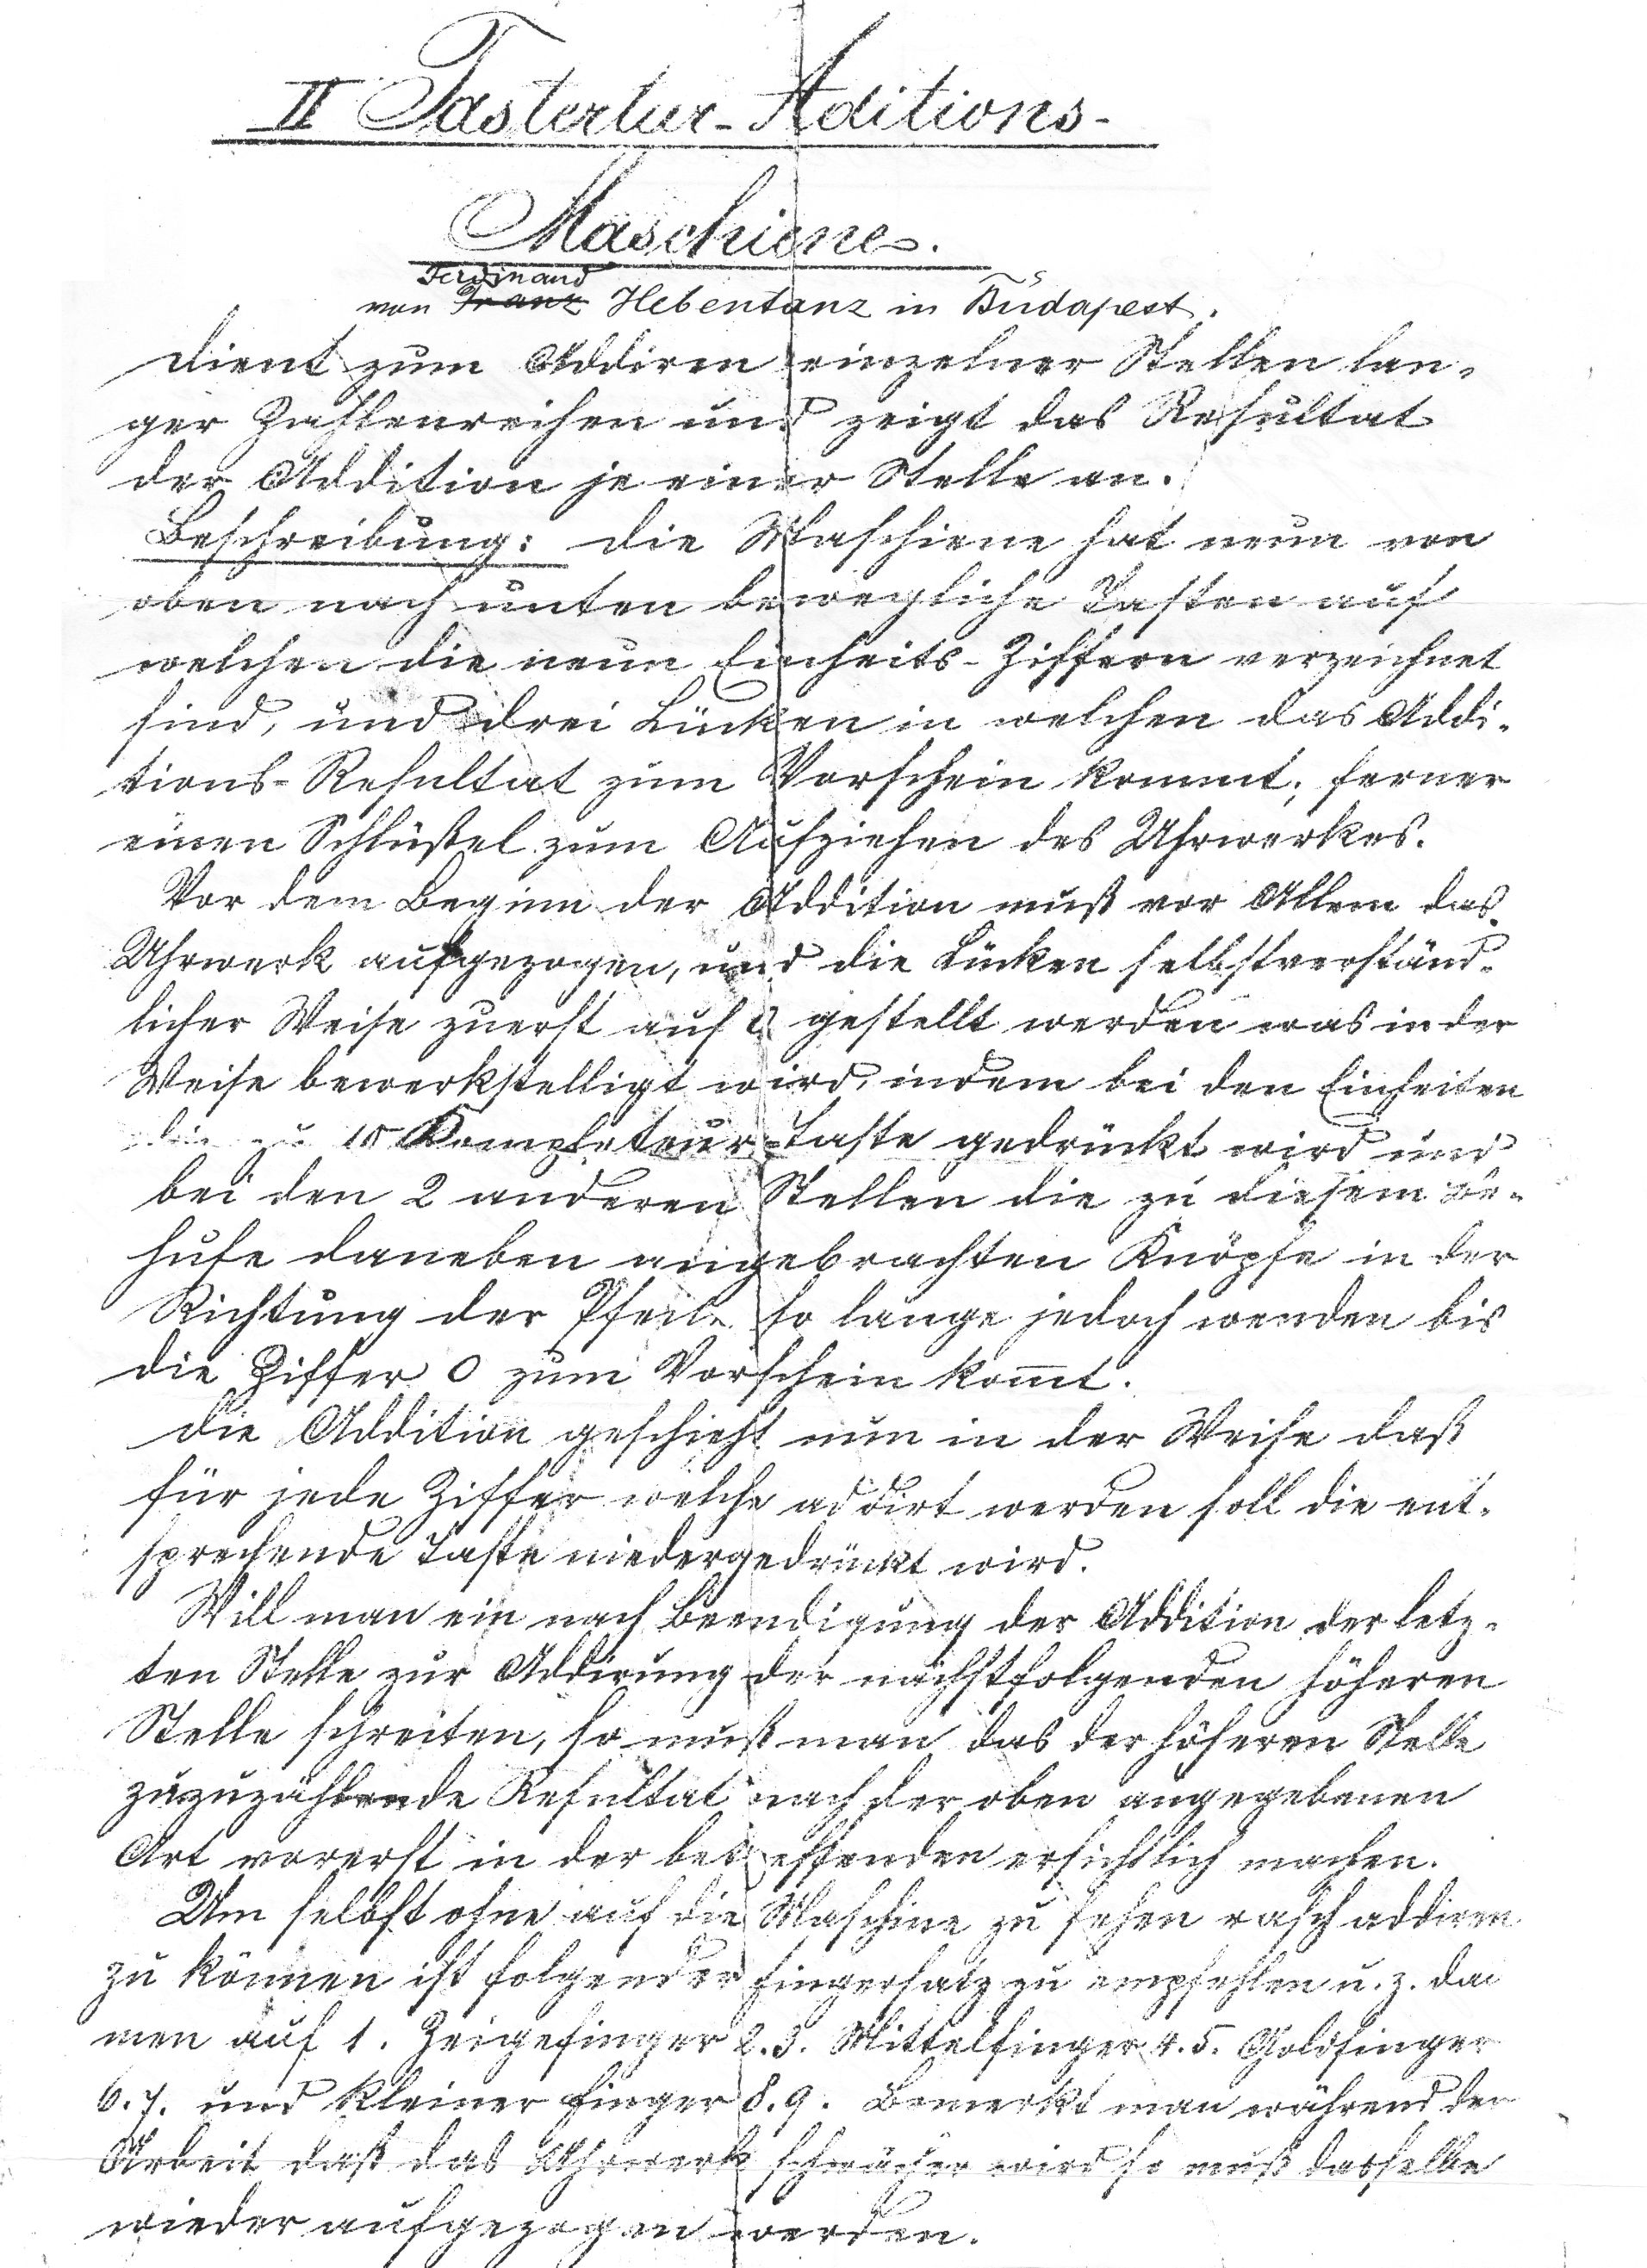 II Tastertur-Aditions-
Maschiene.
Ferdinand
von Franz Hebentanz in Budapest.
dient zum Addiren einzelner Stellen lan-
ger Zahlenreihen und zeigt das Resultat
der Addition je einer Stelle an.
Beschreibung: die Maschiene hat neun von
oben nach unten bewegliche Tasten auf
welchen die neun Einheits-Ziffern verzeichnet
sind, und drei Lücken in welchen das Addi-
tions-Resultat zum Vorschein kommt; ferner
einen Schlüßel zum Aufziehen des Uhrwerkes.
Vor dem Beginn der Addition muß vor Allem das
Uhrwerk aufgezogen, und die Lücken selbstverständ-
licher Weise zuerst auf 0 gestellt werden was in der
Weise bewerkstelligt wird, indem bei den Einheiten
die zu 10 Kompleteur-Taste gedrückt wird und
bei den 2 anderen Stellen die zu diesem Be-
hufe daneben angebrachten Knöpfe in der
Richtung der Pfeile so lange jedoch wenden bis
die Ziffer 0 zum Vorschein kom̅t.
die Addition geschieht nun in der Weise daß
für jede Ziffer welche addirt werden soll die ent-
sprechende Taste niedergedrückt wird.
Will man ein nach Beendigung der Addition der letz-
ten Stelle zur Addirung der nächstfolgenden höheren
Stelle schreiten, so muß man das der höheren Stelle
zuzuzählende Resultat nach der oben angegebenen
Art vorerst in der betreffenden ersichtlich machen.
Um selbst ohne auf die Maschine zu sehen rasch addiren
zu können ist folgender Fingersatz zu empfehlen u. z. dau
men auf 1. Zeigefinger 2.3. Mittelfinger 4.5. Goldfinger
6.7. und kleiner Finger 8.9. Bemerkt man während der
Arbeit daß das Uhrwerk schwächer wird so muß dasselbe
wieder aufgezogen werden.